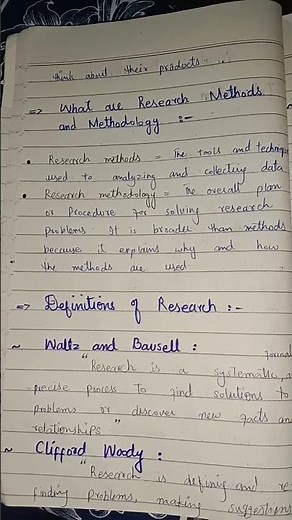 think about their products ...
=> What are Research Methods
and Methodology :-
• Research methods = The tools and techniqu
used to analyzing and collecting data
• Research methodology = The overall plan
or Procedure for solving research
problems. It is broader than methods
because it explains why and how
the methods are used
=> Definitions of Research :-
~ Waltz and Bausell :
"Research is a systematic, 
precise process to find solutions to
problems or discover new facts an
relationships"
~ Clifford Woody :
"Research is defining and re
finding problems, making suggestions